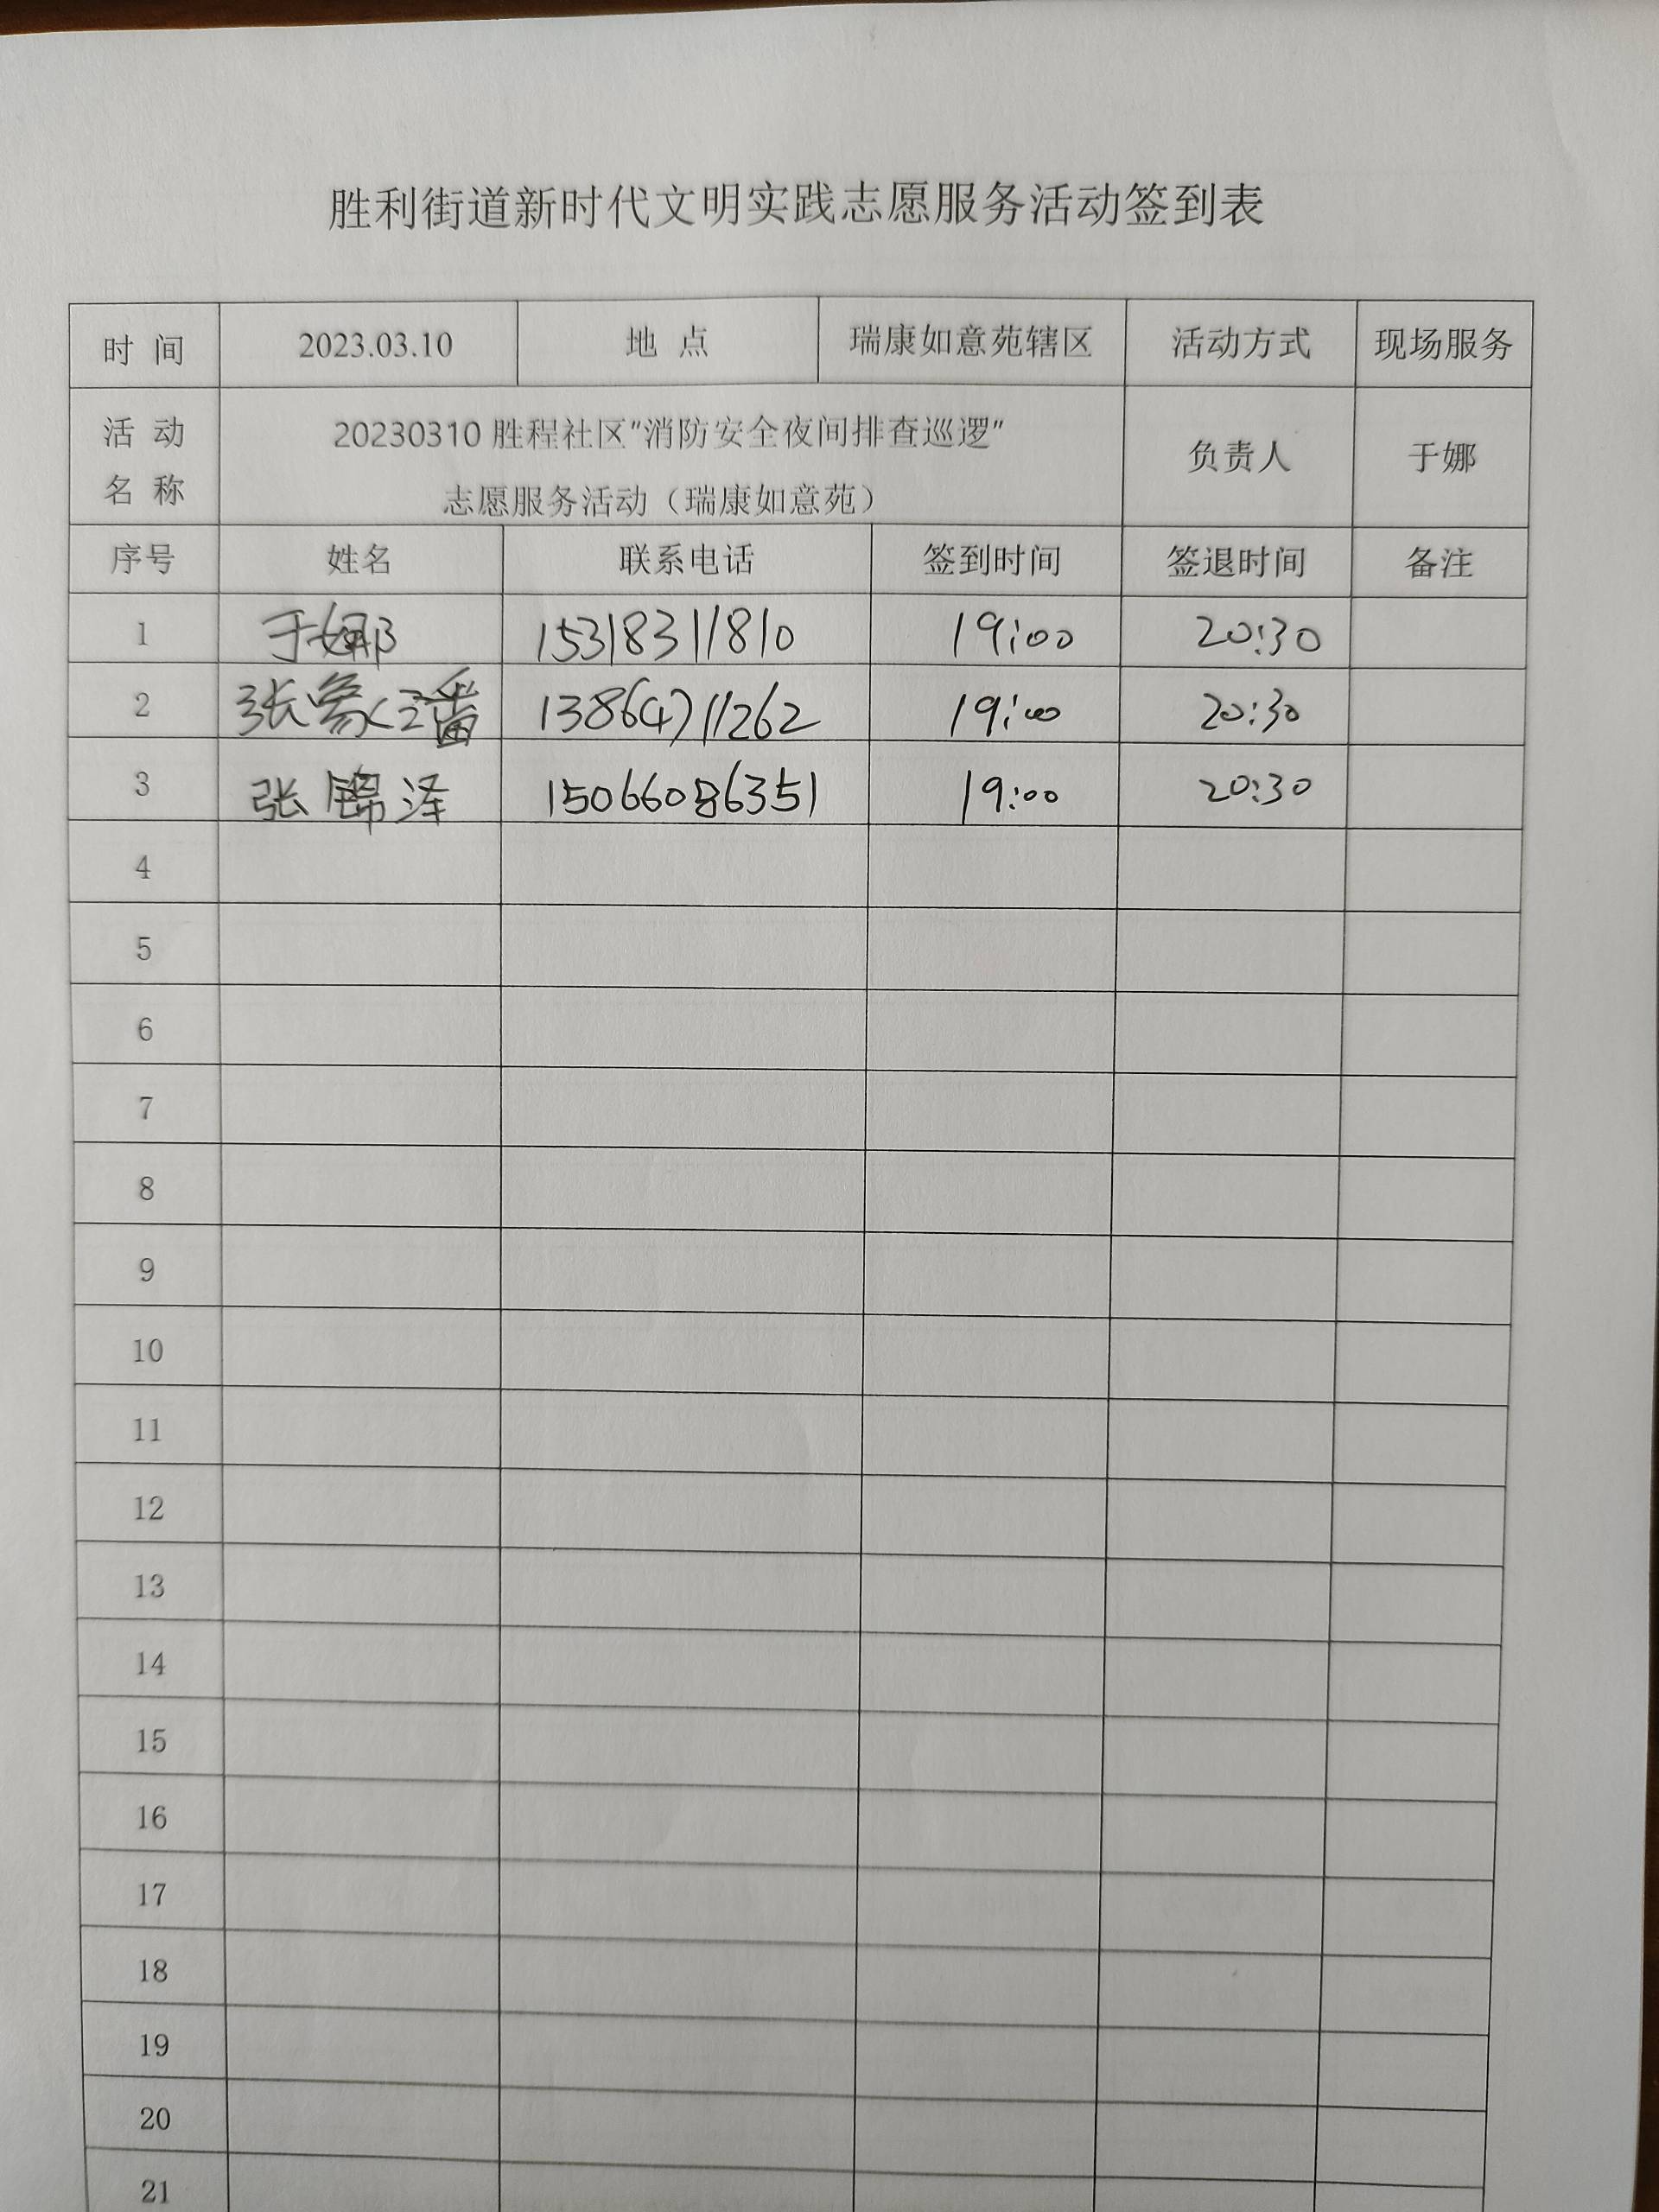 胜利街道新时代文明实践志愿服务活动签到表
时 间 2023.03.10 地 点 瑞康如意苑辖区 活动方式 现场服务
活 动 名 称 20230310 胜程社区"消防安全夜间排查巡逻" 负责人 于娜
志愿服务活动（瑞康如意苑）
序号 姓名 联系电话 签到时间 签退时间 备注
1 于娜 15318311810 19:00 20:30
2 张 13864711262 19:00 20:30
3 张锦泽 15066086351 19:00 20:30
4
5
6
7
8
9
10
11
12
13
14
15
16
17
18
19
20
21